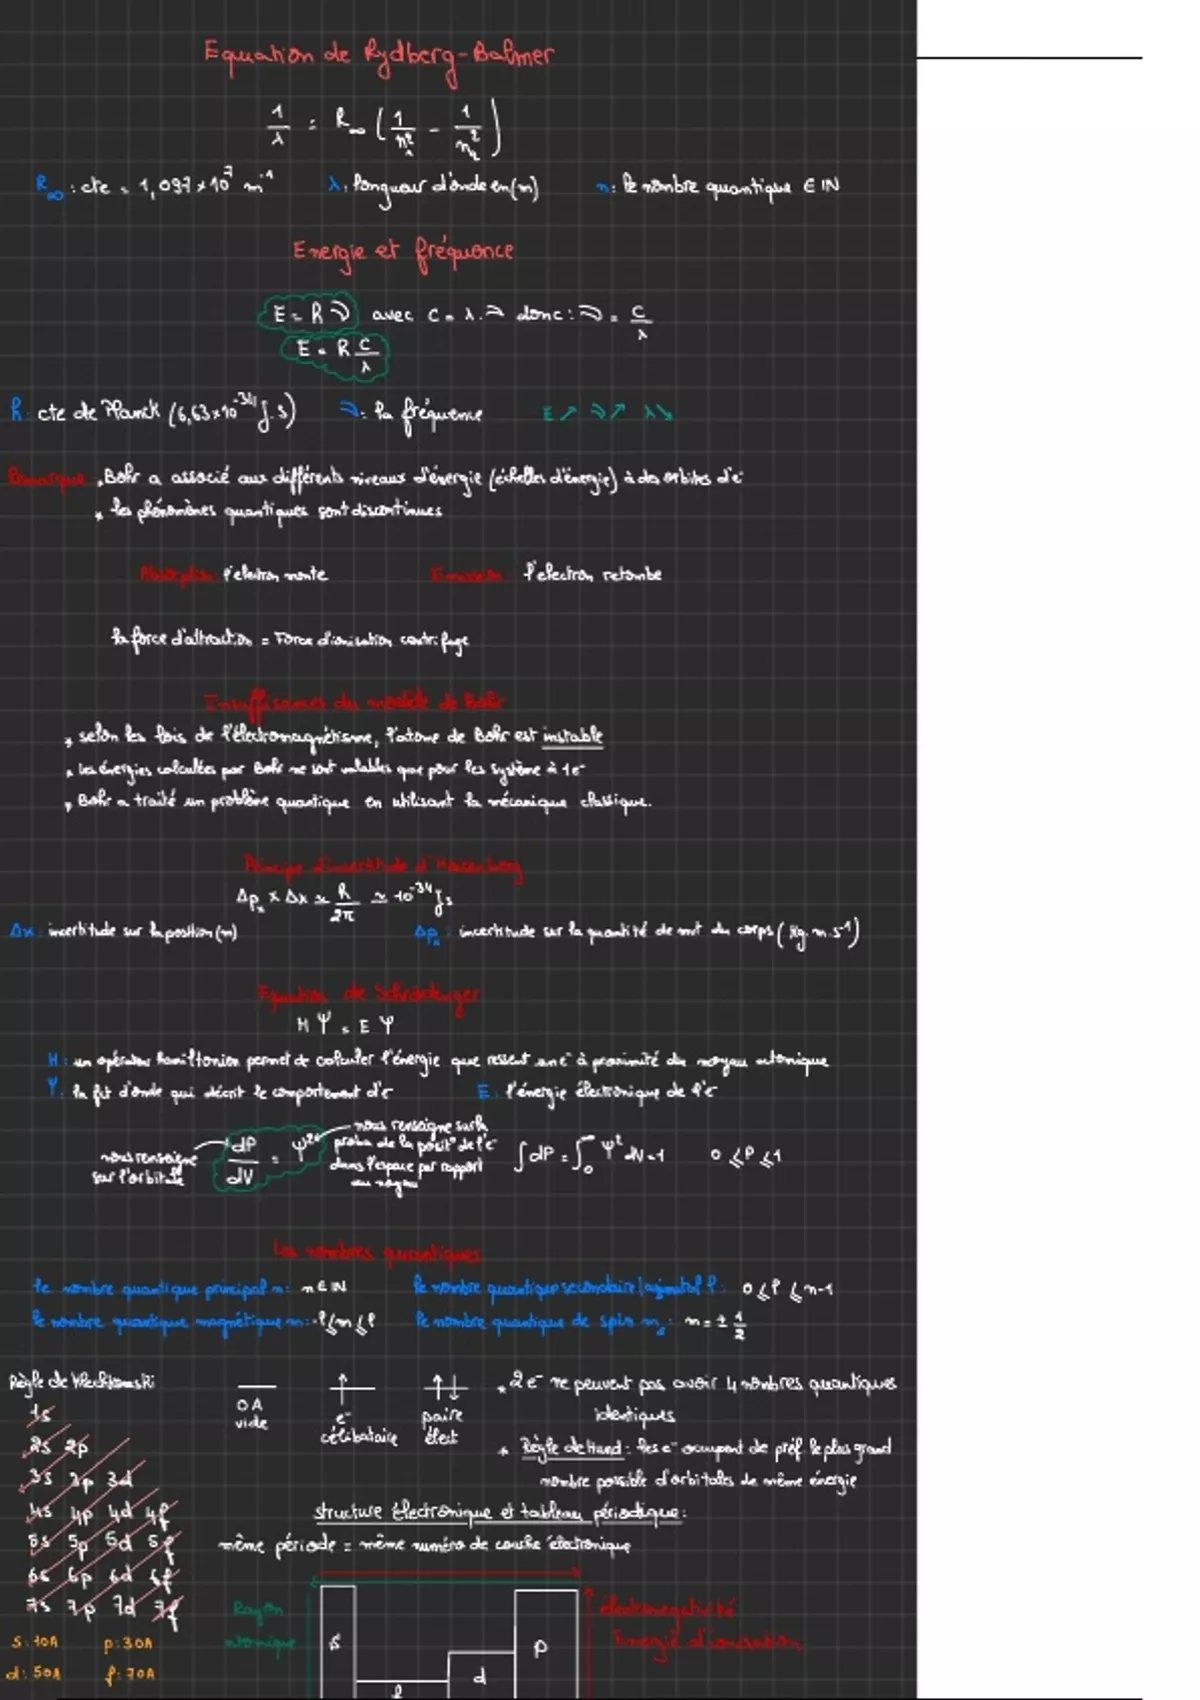 Equation de Rydberg-Balmer
1/λ = R∞ (1/n₁² - 1/n₂²)
R∞ : cte = 1,097 × 10⁷ m⁻¹ λ : longueur d'onde en (m) n : le nombre quantique ∈ IN
Energie et fréquence
E = h ν avec C = λ.ν donc : ν = C/λ
E = h C/λ
h : cte de Planck (6,63×10⁻³⁴ J.s) ν : la fréquence E ↗ ν ↗ λ ↘
Remarque : * Bohr a associé aux différents niveaux d'énergie (échelles d'énergie) à des orbites d'e⁻
* les phénomènes quantiques sont discontinues
Absorption : l'electron monte Emission : l'electron retombe
la force d'attraction = Force d'ionisation centrifuge
Insuffisances du modèle de Bohr
* selon les lois de l'électromagnétisme, l'atome de Bohr est instable
* les énergies calculées par Bohr ne sont valables que pour les système à 1e⁻
* Bohr a traité un problème quantique en utilisant la mécanique classique.
Principe d'incertitude d'Heisenberg
Δpₓ × Δx ≈ h/2π ≈ 10⁻³⁴ J.s
Δx : incertitude sur la position (m) Δpₓ : incertitude sur la quantité de mvt du corps (Kg.m.s⁻¹)
Equation de Schrödinger
H Ψ = E Ψ
H : un opérateur hamiltonien permet de calculer l'énergie que ressent un e⁻ à proximité du noyau atomique
Ψ : la fct d'onde qui décrit le comportement d'e⁻ E : l'énergie électronique de l'e⁻
nous renseigne sur l'orbitale dP/dV = Ψ² nous renseigne sur la proba de la posit° de l'e⁻ dans l'espace par rapport au noyau ∫dP = ∫₀^∞ Ψ² dV = 1 0 ⩽ P ⩽ 1
Les nombres quantiques
le nombre quantique principal n : n ∈ IN le nombre quantique secondaire/azimutal l : 0 ⩽ l ⩽ n-1
le nombre quantique magnétique m : -l ⩽ m ⩽ l le nombre quantique de spin mₛ : m = ± 1/2
Règle de Klechkowski
1s
2s 2p
3s 3p 3d
4s 4p 4d 4f
5s 5p 5d 5f
6s 6p 6d 6f
7s 7p 7d 7f
s : 1OA p : 3OA
d : 5OA f : 7OA
OA vide
e⁻ célibataire
paire élect
* 2e⁻ ne peuvent pas avoir 4 nombres quantiques
identiques
* Règle de Hund : les e⁻ occupent de préf. le plus grand
nombre possible d'orbitales de même énergie
structure électronique et tableau périodique :
même période = même numéro de couche électronique
Rayon
atomique
s
d
p
électronegativité
Energie d'ionisation